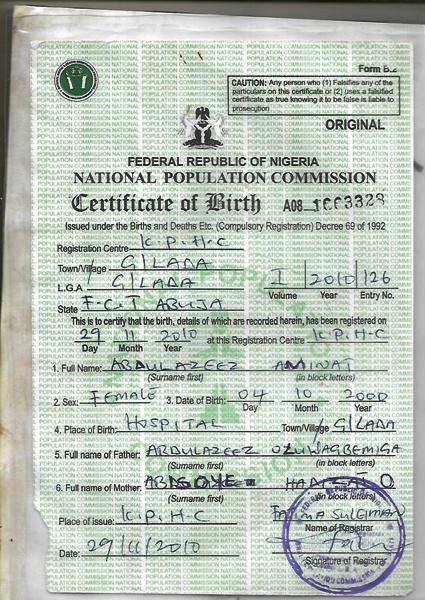 Form B.2
CAUTION: Any person who (1) Falsifies any of the
particulars on this certificate or (2) uses a falsified
certificate as true knowing it to be false is liable to
prosecution
ORIGINAL
FEDERAL REPUBLIC OF NIGERIA
NATIONAL POPULATION COMMISSION
Certificate of Birth A08
Issued under the Births and Deaths Etc. (Compulsory Registration) Decree 69 of 1992
Registration Centre K.P.H.C
Town/Village GILADA
L.G.A. GILADA I 2010 126
Volume Year Entry No.
State F.C.T ABUJA
This is to certify that the birth, details of which are recorded herein, has been registered on
29 11 2010 at this Registration Centre K.P.H-C
Day Month Year
1. Full Name: ABDULAZEEZ AMINAT
(Surname first) (in block letters)
2. Sex: FEMALE 3. Date of Birth: 04 10 2000
Day Month Year
4. Place of Birth: HOSPITAL Town/Village GILADA
5. Full name of Father: ABDULAZEEZ OLUWAGBEMIGA
(Surname first) (in block letters)
6. Full name of Mother: O
(Surname first) (in block letters)
Place of issue: K.P.H.C SULEIMAN
Name of Registrar
Date: 29/11/2010
Signature of Registrar